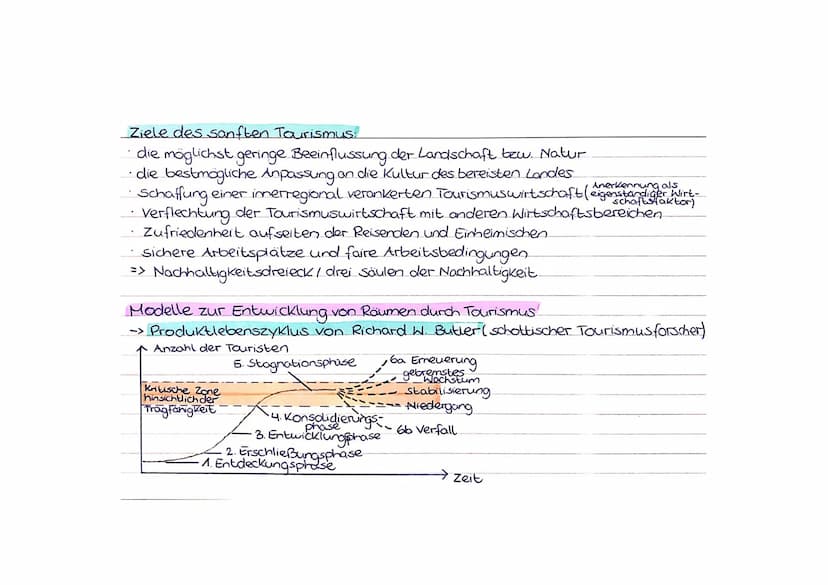 Ziele des sanften Tourismus:
· die möglichst geringe Beeinflussung der Landschaft bzw. Natur
· die bestmögliche Anpassung an die Kultur des bereisten Landes
· Schaffung einer innerregional verankerten Tourismuswirtschaft (Anerkennung als eigenständiger Wirtschaftsfaktor)
· Verflechtung der Tourismuswirtschaft mit anderen Wirtschaftsbereichen
· Zufriedenheit aufseiten der Reisenden und Einheimischen
· sichere Arbeitsplätze und faire Arbeitsbedingungen
=> Nachhaltigkeitsdreieck / drei Säulen der Nachhaltigkeit
Modelle zur Entwicklung von Räumen durch Tourismus
-> Produktlebenszyklus von Richard W. Butler (schottischer Tourismusforscher)
Anzahl der Touristen
5. Stagnationsphase
6a Erneuerung
gebremstes
Wachstum
Stabilisierung
Niedergang
6b Verfall
Kritische Zone
hinsichtlich der
Tragfähigkeit
4. Konsolidierungs-
phase
3. Entwicklungsphase
2. Erschließungsphase
1. Entdeckungsphase
Zeit